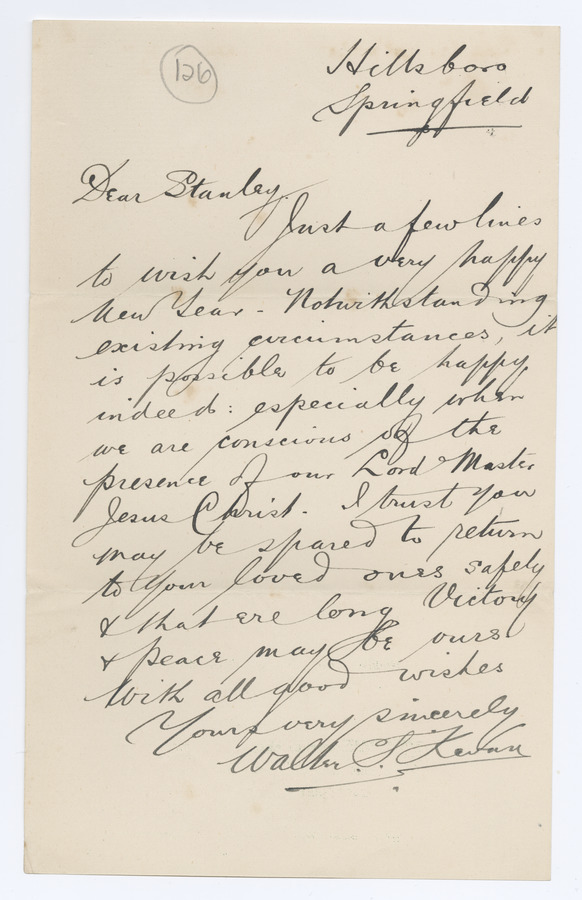 126
Hillsboro
Springfield
Dear Stanley.
Just a few lines
to wish you a very happy
New Year - Notwithstanding
existing circumstances, it
is possible to be happy,
indeed: especially when
we are conscious of the
presence of our Lord & Master
Jesus Christ. I trust you
may be spared to return
to your loved ones safely
& that ere long Victory
& peace may be ours
With all good wishes
Yours very sincerely
Walter S. Kevan